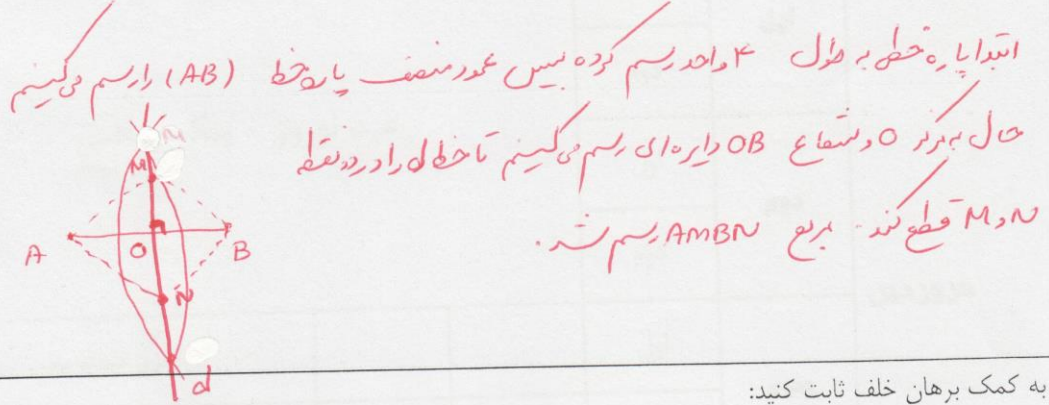 ابتدا پاره خطی به طول ۴ واحد رسم کرده سپس عمود منصف پاره خط (AB) را رسم می‌کنیم
حال به مرکز O و شعاع OB دایره ای رسم می‌کنیم تا خط d را در دو نقطه
M و N قطع کند. مربع AMBN رسم شد.
M
M
A
O
B
N
d
به کمک برهان خلف ثابت کنید: